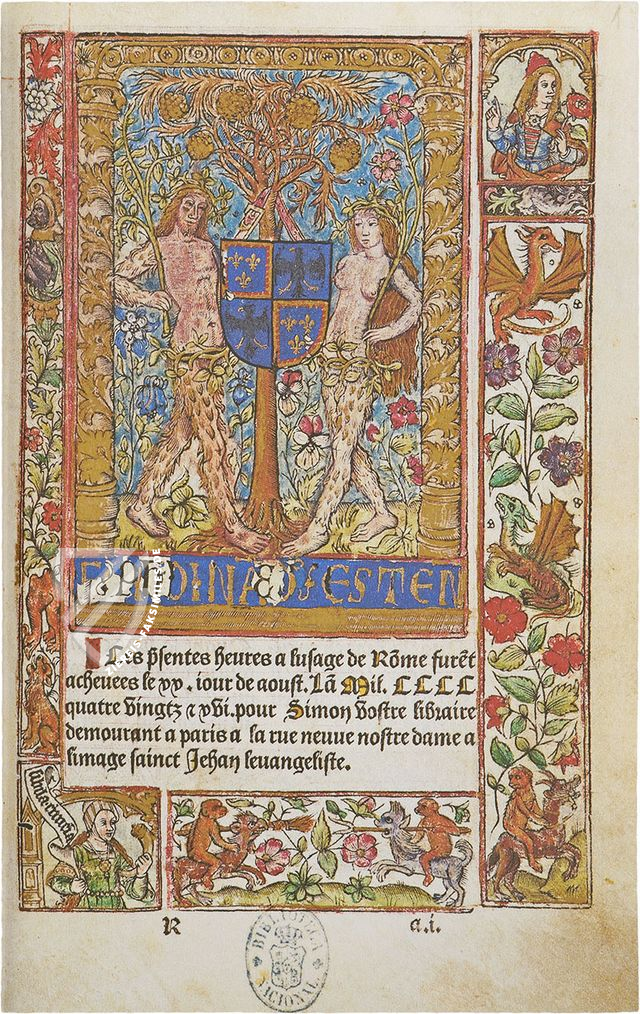 Les p̃sentes heures a lusage de Rõme furẽt
acheuees le xx. iour de aoust. Lã Mil. CCCC
quatre vingtz ⁊ xvi. pour Simon vostre libraire
demourant a paris a la rue neuue nostre dame a
limage sainct Jehan leuangeliste.
R
a.i.
BIBLIOTECA
NACIONAL